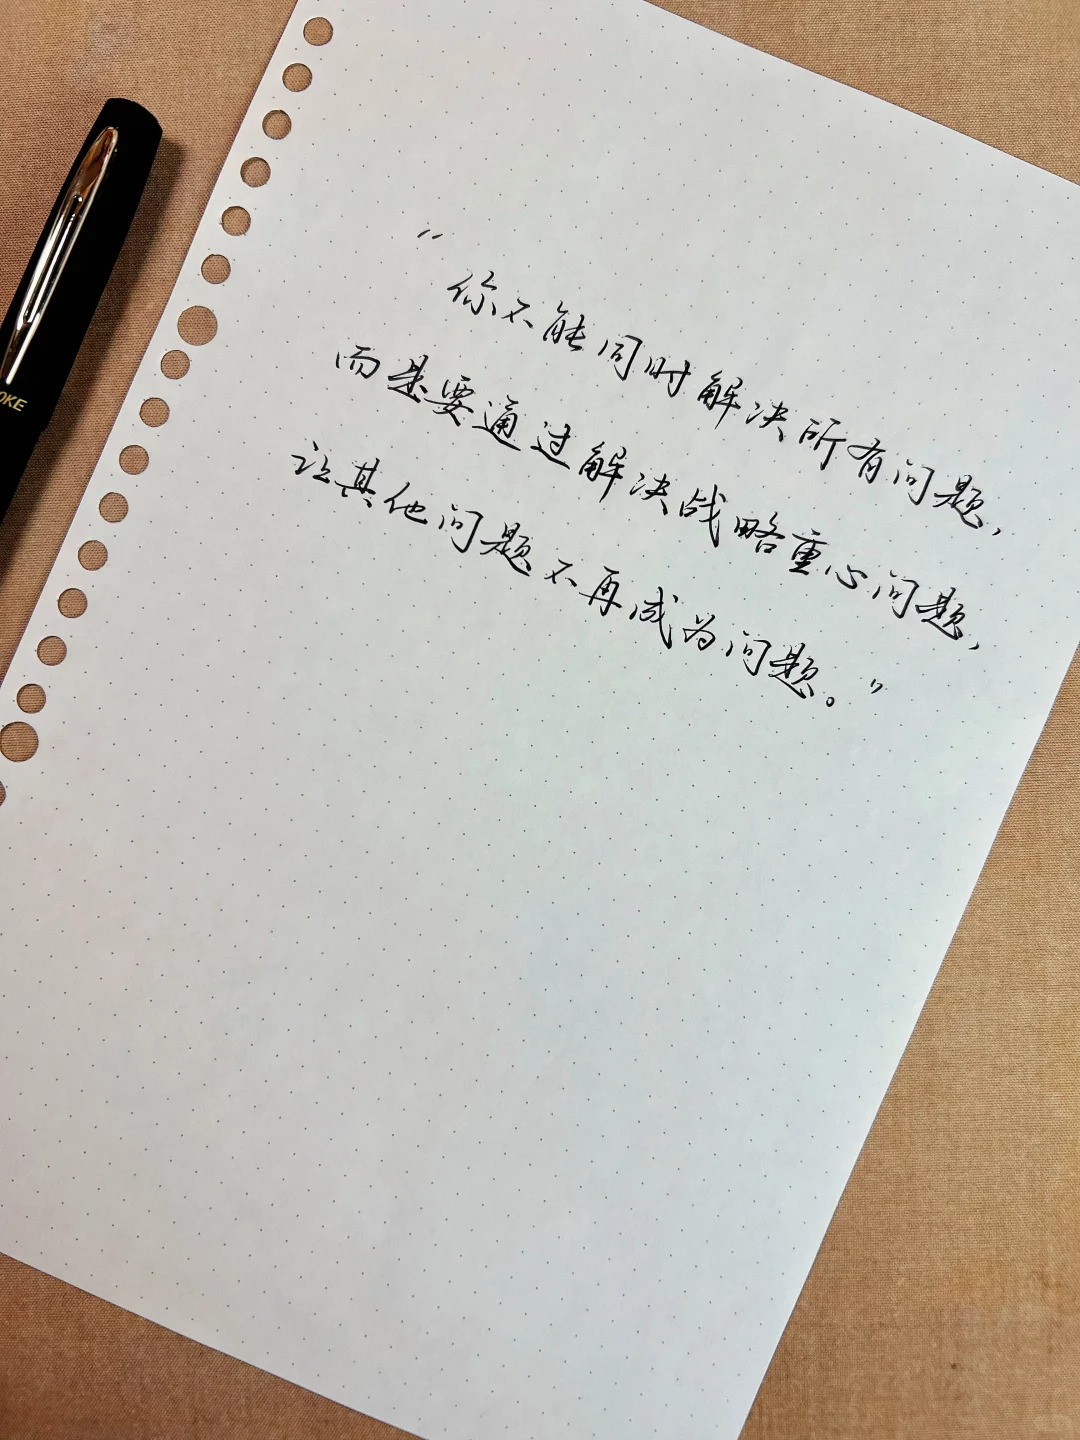 “
你不能同时解决所有问题，
而是要通过解决战略重心问题，
让其他问题不再成为问题。”
OKE